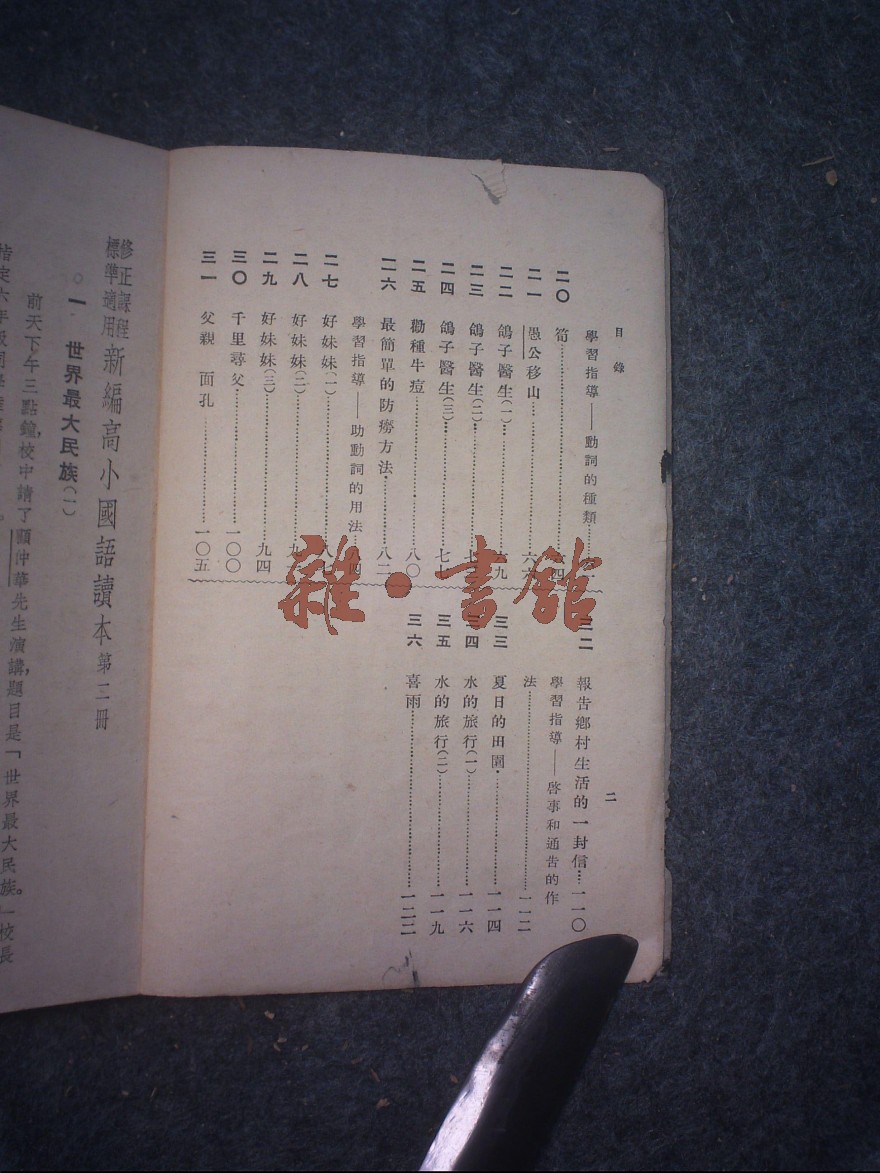 目錄
學習指導——動詞的種類
二〇 筍
二一 愚公移山
二二 鴿子醫生(一)
二三 鴿子醫生(二)
二四 鴿子醫生(三) 七七
二五 勸種牛痘 八〇
二六 最簡單的防癆方法 八二
學習指導——助動詞的用法 八四
二七 好妹妹(一) 八七
二八 好妹妹(二)
二九 好妹妹(三) 九四
三〇 千里尋父 一〇〇
三一 父親 面孔 一〇五
三二 報告鄉村生活的一封信 一一〇
學習指導——啓事和通告的作
法 一一二
三三 夏日的田園 一一四
三四 水的旅行(一) 一一六
三五 水的旅行(二) 一一九
三六 喜雨 一二二
二
雜·書館
修正課程標準適用 新編高小國語讀本 第三冊
一 世界最大民族(一)
前天下午三點鐘,校中請了顧仲華先生演講,題目是「世界最大民族。」校長
指定六年級同學